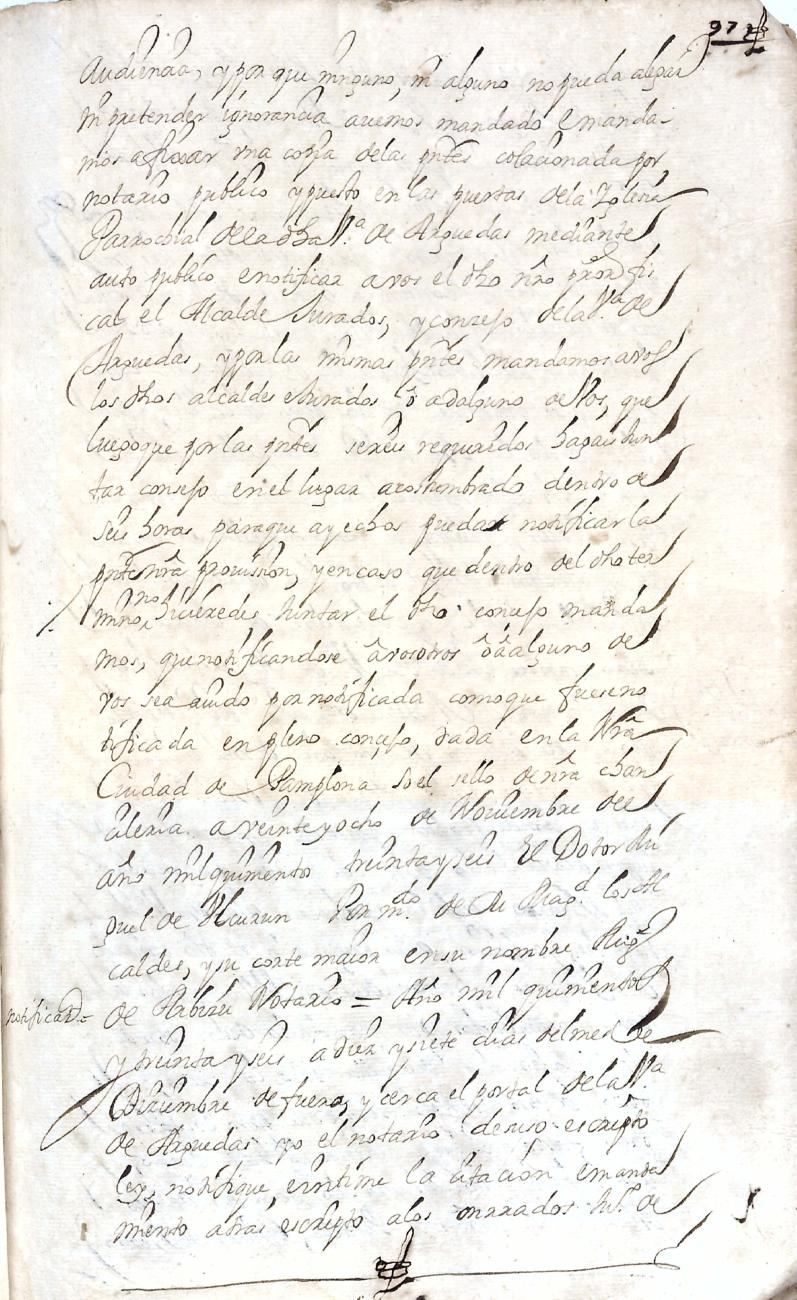 97
Audiencia, y por que ninguno, ni alguno no pueda alegar
ni pretender ignorancia auemos mandado e manda-
mos afixar vna copia de las pntes colacionada por
notario publico y puesto en las puertas de la Iglesia
Parrochial de la dha Va de Arguedas mediante
auto publico e notificar a vos el dho nro pror fis
cal el Alcalde Jurados, y conzejo de la Va de
Arguedas, y por las mismas pntes mandamos a vos
los dhos alcaldes e Jurados ô a dalguno de Vos, que
luego que por las pntes sereis requeridos hagais Jun
tar consejo en el lugar acostumbrado dentro de
seis horas para que ay echos puedan notificar la
pnte nra prouision, y en caso que dentro del dho ter
mino no hicieredes Juntar el dho concejo manda
mos, que notificandose â vosotros ô â alguno de
vos sea auido por notificada como que fuese no
tificada en pleno concejo, dada en la Nra
Ciudad de Pamplona so el sello de nra chan
cileria a veinte y ocho de Nouiembre del
año mil quiniento treinta y seis El Dotor Mi
guel de Ytcurun Por mdo de Su Magd los Al
caldes, y su corte maior en su nombre Migl
notificado de Arbizu Notario = Año mil quinientos
y treinta y seis a diez y siete dias del mes de
Diziembre de fuera, y cerca el portal de la Va
de Arguedas yo el notario desuso escripto
ley, notifique, e intime la citacion e manda
miento atras escripto a los onrrados Jun de